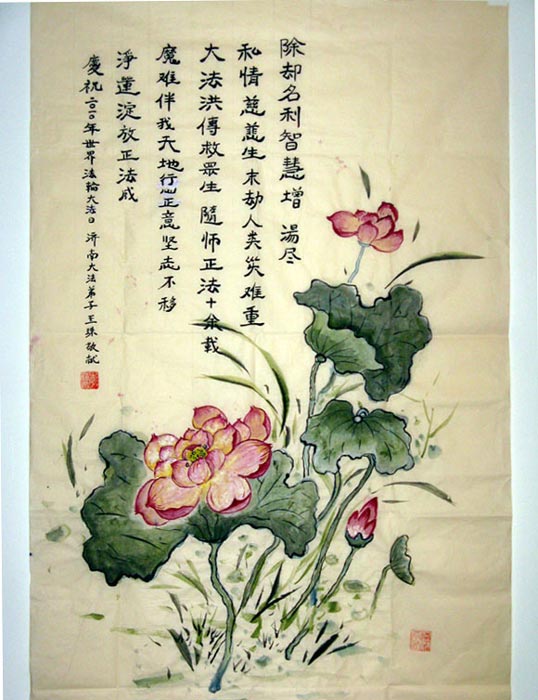 除却名利智慧增 湯尽
私情慈悲生末劫人类災难重
大法洪傳救眾生 隨師正法十余载
魔难伴我天地行正意坚志不移
淨蓮淀放正法成
慶祝二〇一〇年世界法輪大法日 济南大法弟子王珠敬献